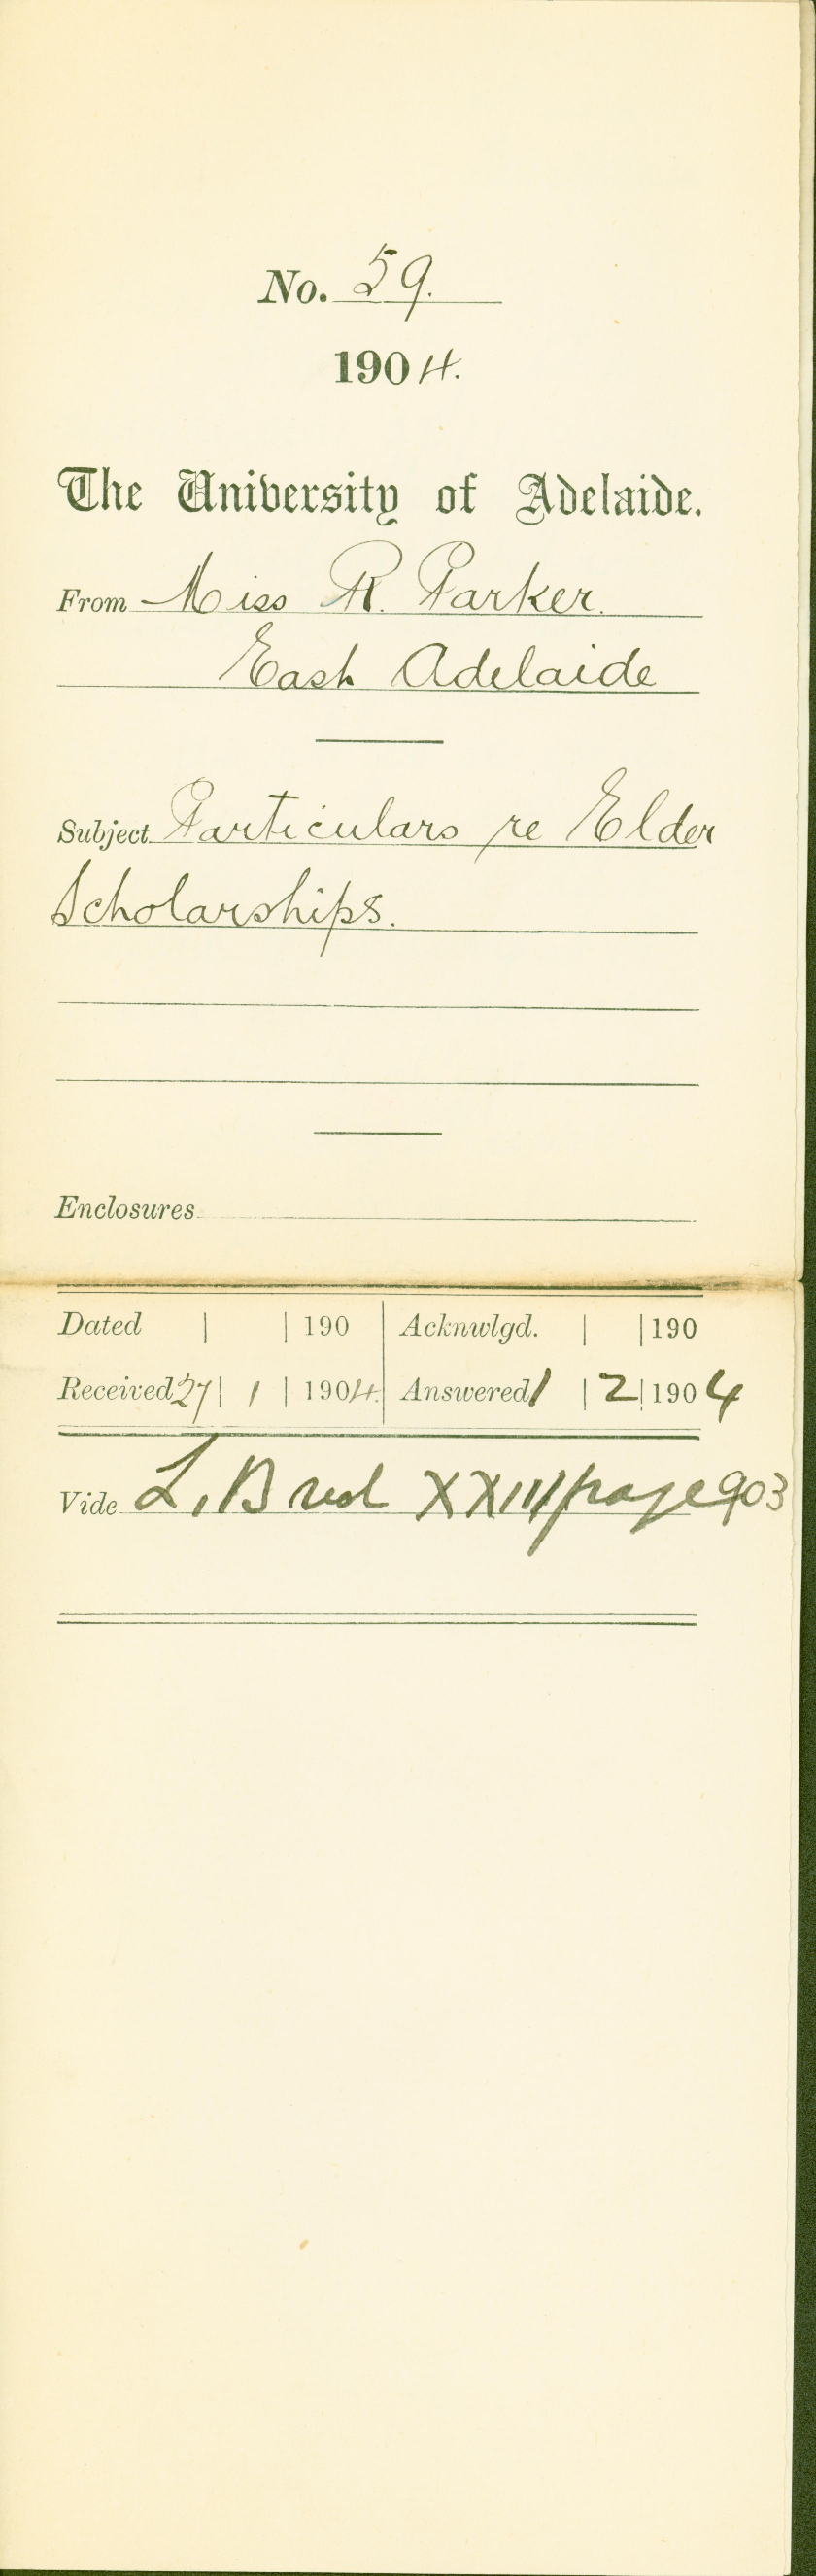 No. 59.
1904.
The University of Adelaide.
From Miss R. Parker.
East Adelaide
Subject Particulars re Elder
Scholarships.
Enclosures
Dated | | 190 | Acknwlgd. | | 190
Received 27 | 1 | 1904. | Answered 1 | 2 | 1904
Vide L, B vol XXIII page 903